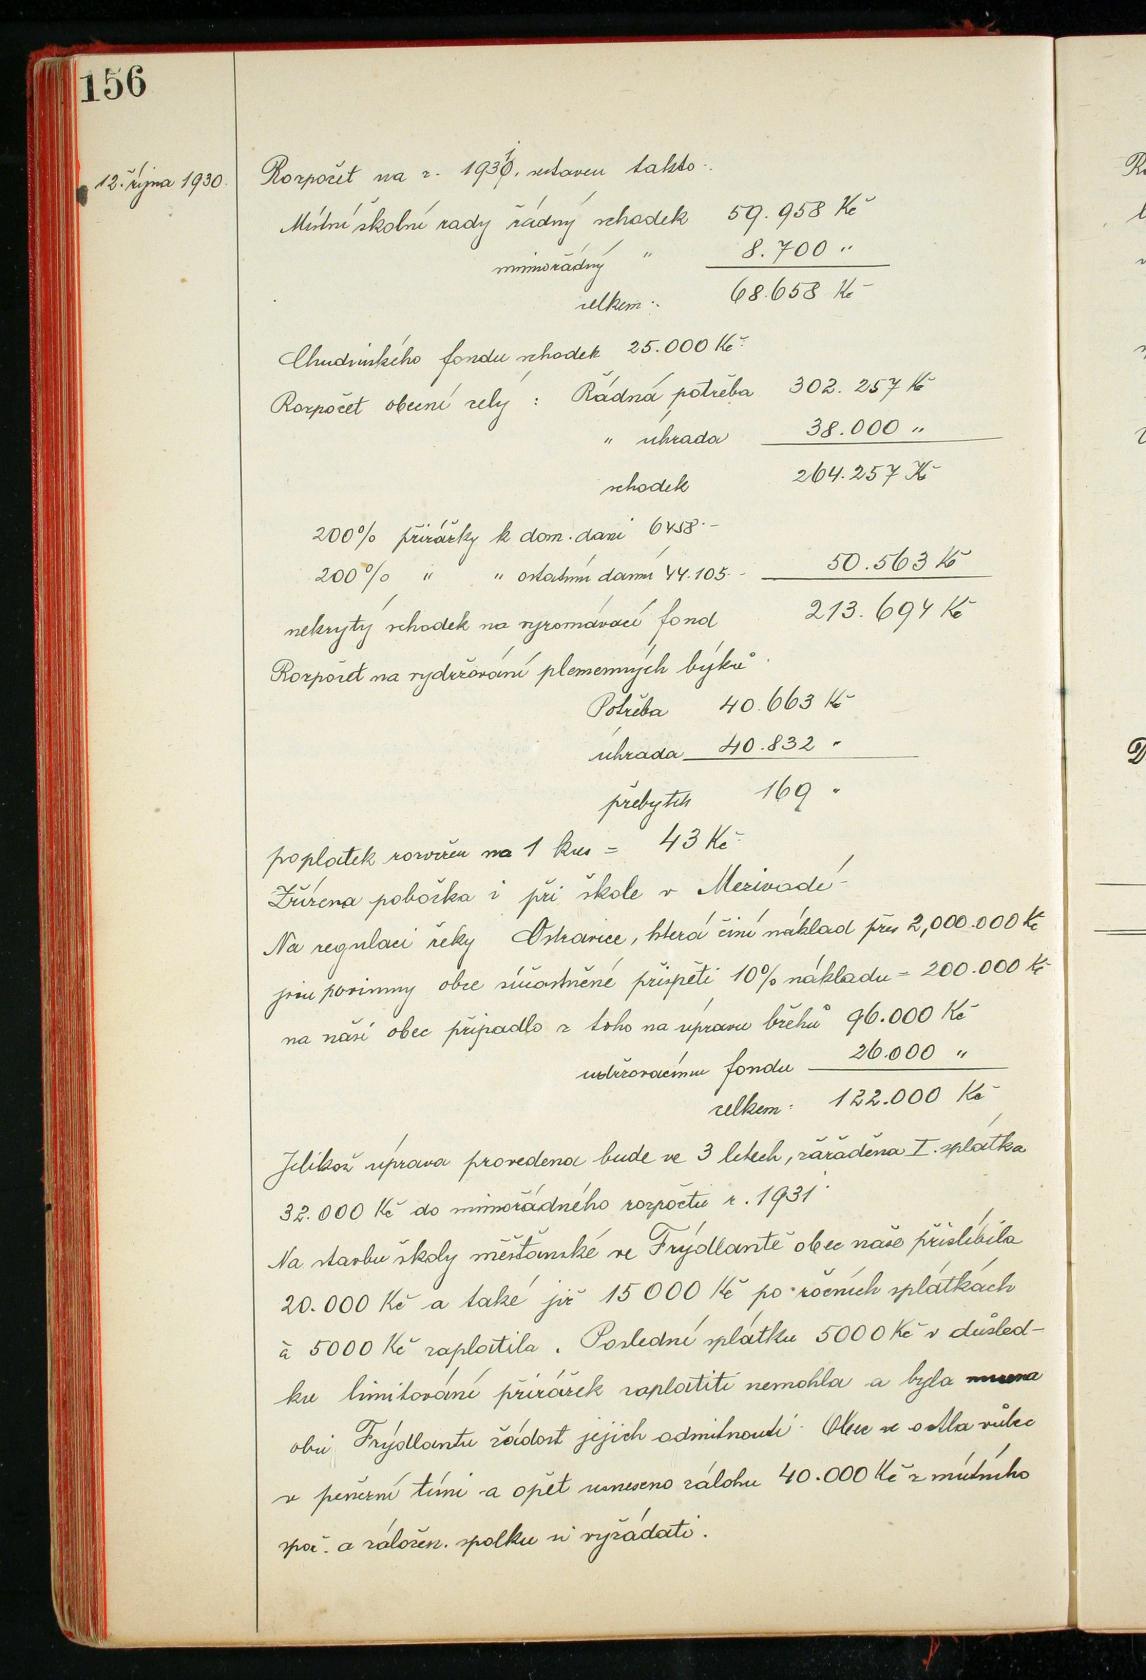 156
12. října 1930.
Rozpočet na r. 1931, sestaven takto:
Místní školní rady řádný schodek 59.958 Kč
mimořádný " 8.700 "
celkem: 68.658 Kč
Chudinského fondu schodek 25.000 Kč
Rozpočet obecní celý : Řádná potřeba 302.257 Kč
" úhrada 38.000 "
schodek 264.257 Kč
200% přirážky k dom. dani 6458.-
200% " " ostatním daním 44.105.- 50.563 Kč
nekrytý schodek na vyrovnávací fond 213.694 Kč
Rozpočet na vydržování plemenných býků.
Potřeba 40.663 Kč
úhrada 40.832 "
přebytek 169 "
poplatek rozvržen na 1 kus = 43 Kč
Zřízena pobočka i při škole v Mezivodí.
Na regulaci řeky Ostravice, která činí náklad přes 2,000.000 Kč
jsou povinny obce súčastněné přispěti 10% nákladu = 200.000 Kč
na naší obec připadlo z toho na úpravu břehů 96.000 Kč
udržovacímu fondu 26.000 "
celkem: 122.000 Kč
Jelikož úprava provedena bude ve 3 letech, zařaděna I. splátka
32.000 Kč do mimořádného rozpočtu r. 1931.
Na stavbu školy měšťanské ve Frýdlantě obec naše přislíbila
20.000 Kč a také již 15000 Kč po ročních splátkách
à 5000 Kč zaplatila. Poslední splátku 5000 Kč v důsled-
ku limitování přirážek zaplatiti nemohla a byla nucena
obci Frýdlantu žádost jejich odmítnouti. Obec se octla vůbec
v peněžní tísni a opět usneseno zálohu 40.000 Kč z místního
spoř. a záložen. spolku si vyžádati.